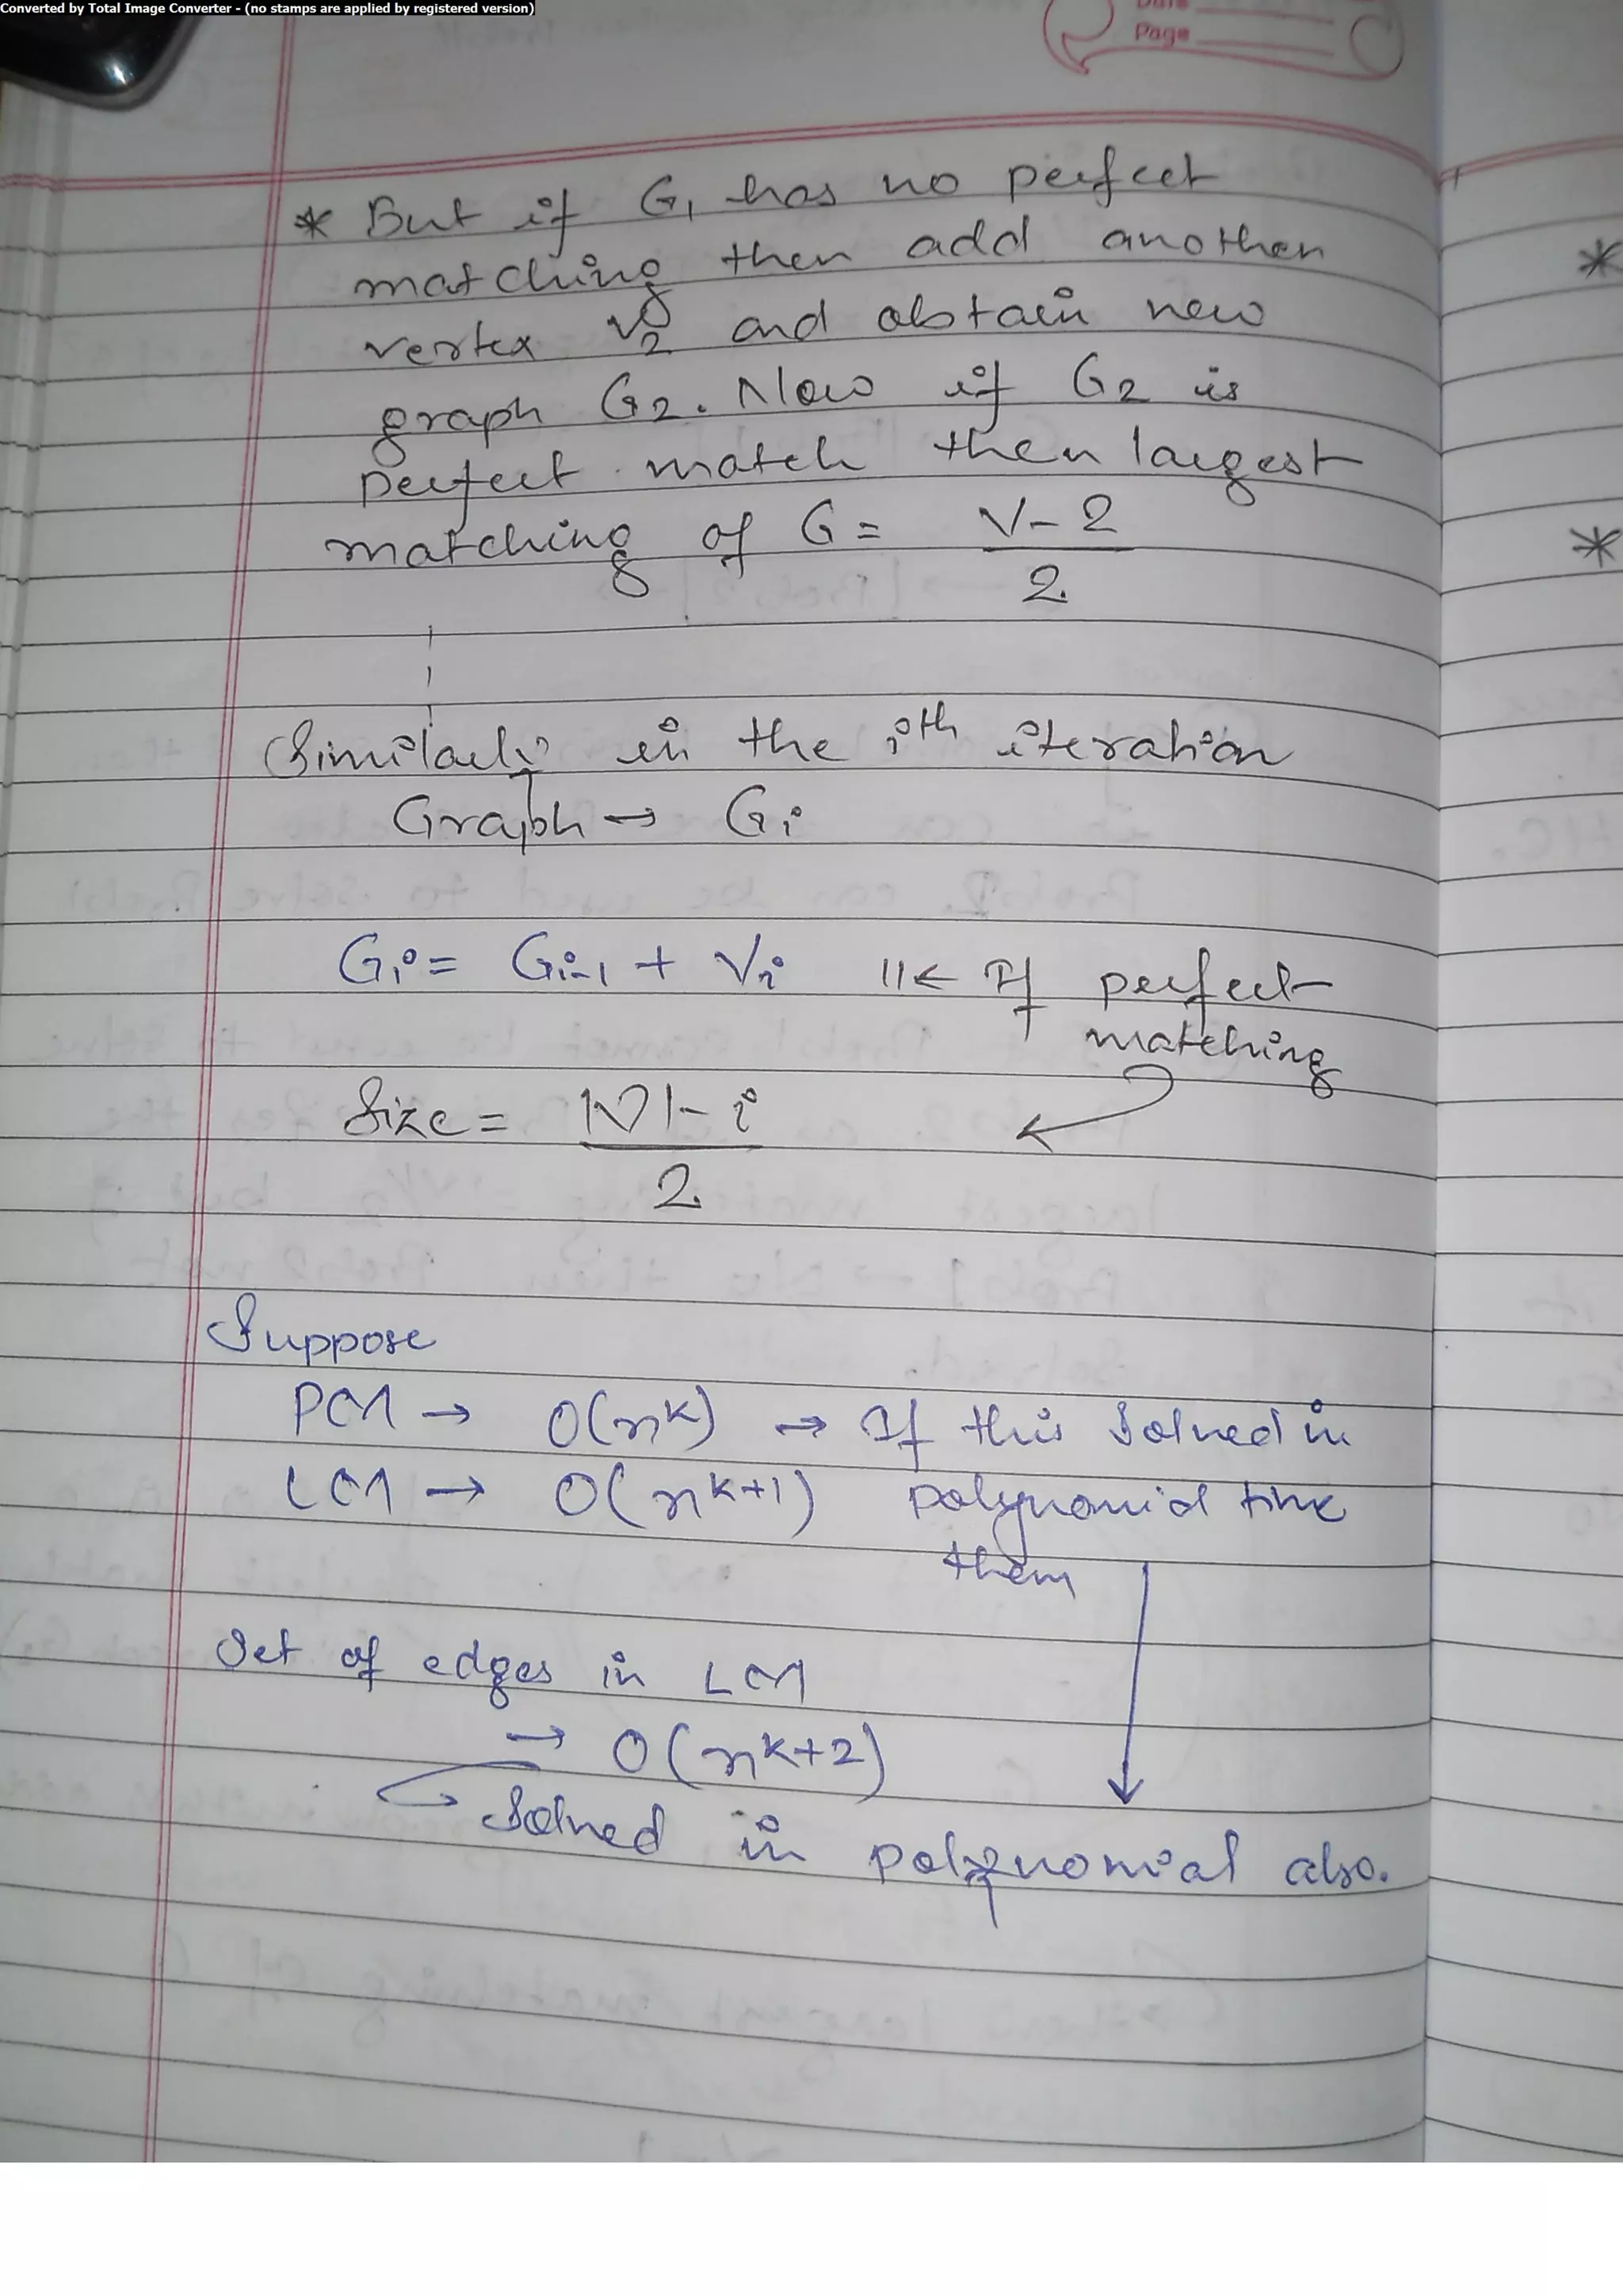 Converted by Total Image Converter - (no stamps are applied by registered version)
Page
* But if G1 has no perfect
matching then add another
vertex V2 and obtain new
graph G2. Now if G2 is
perfect match then largest
matching of G = V-2
2
Similarly in the ith iteration
Graph → Gi
Gi = Gi-1 + Vi || ← If perfect
matching
Size = |V|-i
2
Suppose
PM → O(n^k) → If this solved in
LM → O(n^k+1) polynomial time
them
Set of edges in LM
→ O(n^k+2)
Solved in polynomial also.
*
*
HC.